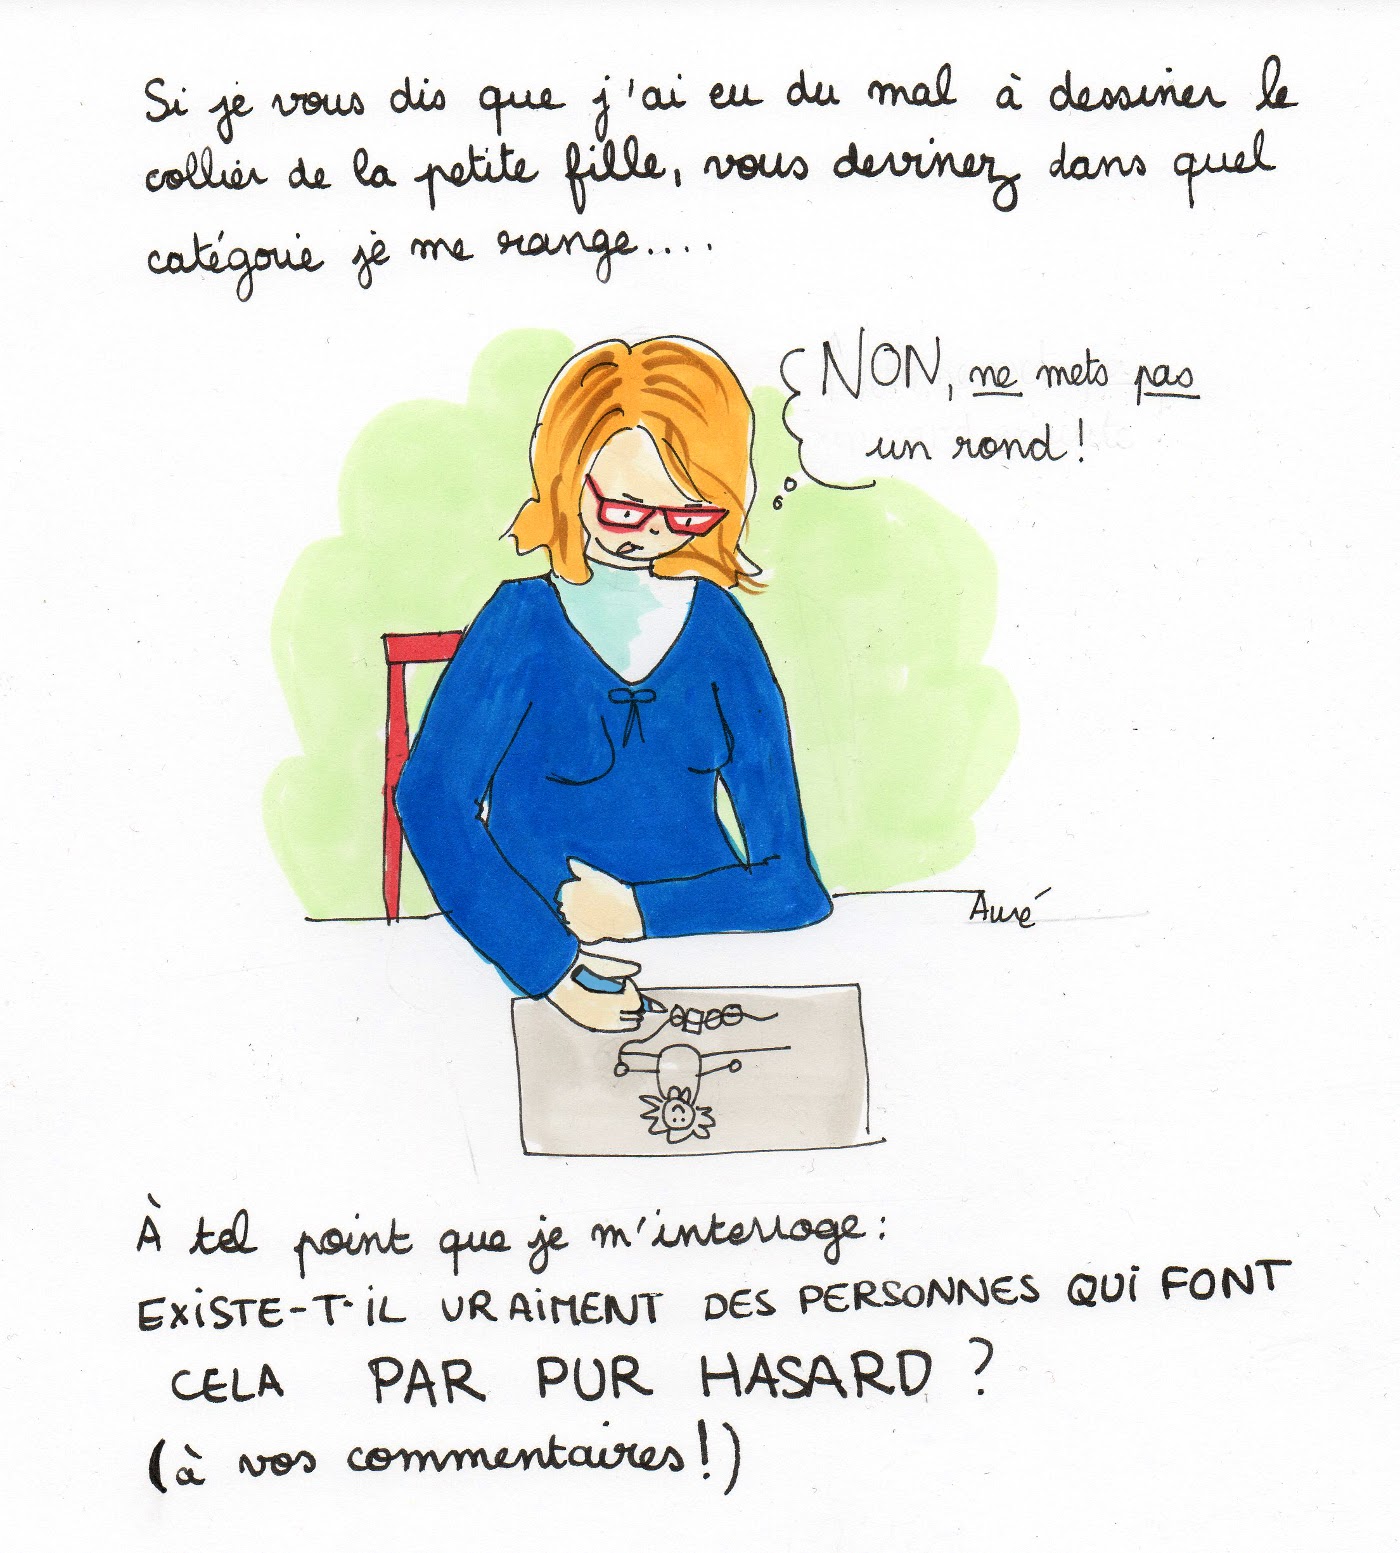 Si je vous dis que j'ai eu du mal à dessiner le
collier de la petite fille, vous devinez dans quel
catégorie je me range....
NON, ne mets pas
un rond !
Auré
À tel point que je m'interroge :
EXISTE-T-IL VRAIMENT DES PERSONNES QUI FONT
CELA PAR PUR HASARD ?
(à vos commentaires !)